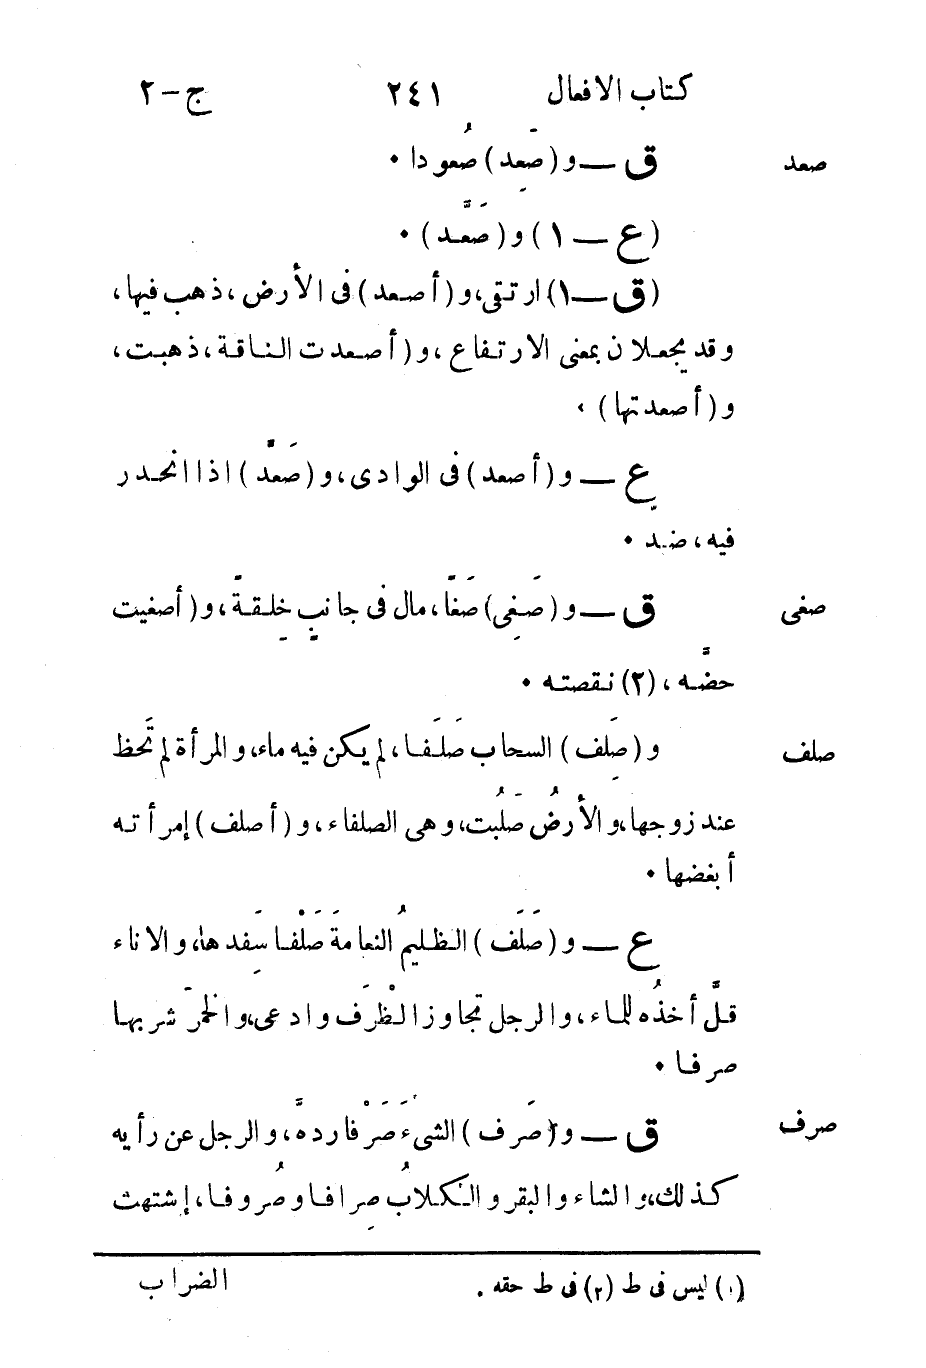 كتاب الافعال ٢٤١ ج-٢
صعد ق — و (صَعِد) صُعودا ٠
(ع — ١) و (صَعَّد) ٠
(ق — ١) ارتقى، و (أصعد) فى الأرض، ذهب فيها،
وقد يجعلان بمعنى الارتفاع، و (أصعدت الناقة، ذهبت،
و (أصعدتها) ،
ع — و (أصعد) فى الوادى، و (صَعَّد) اذا انحدر
فيه، ضد ٠
صغى ق — و (صَغِى) صَغًا، مال فى جانبٍ خِلقةً، و (أصغيت
حضَّه، (٢) نقصته ٠
صلف و (صَلِف) السحاب صَلَفا، لم يكن فيه ماء، والمرأة لم تَحظ
عند زوجها، والأرضُ صَلُبت، وهى الصلفاء، و (أصلف) إمرأته
أبغضها ٠
ع — و (صَلَف) الظليمُ النعامةَ صَلْفا سَفِدها، والاناء
قلَّ أخذُه للماء، والرجل تجاوز الظْرَف وادعى، والخمرَ شربها
صرفا ٠
صرف ق — و (صَرف) الشىءَ صَرْفا ردَّه، والرجل عن رأيه
كذلك، والشاء والبقر والكلابُ صِرافا وصُروفا، إشتهت
(١) ليس فى ط (٢) فى ط حقه . الضراب